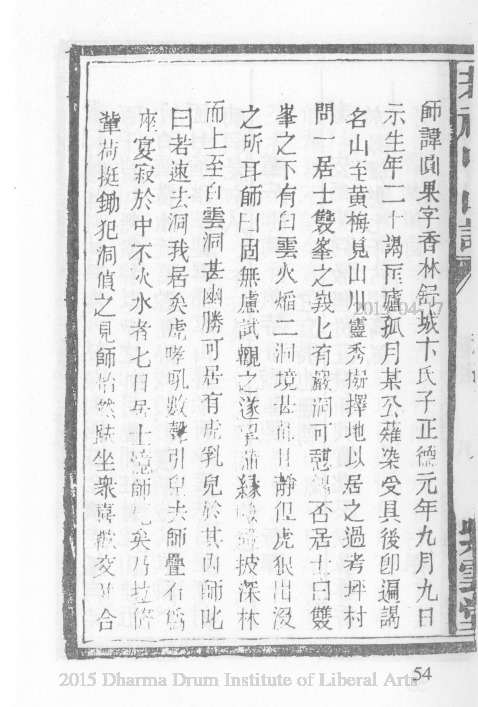 師諱圓果字香林舒城卞氏子正德元年九月九日
示生年二十謁匡廬孤月某公薙染受具後卽遍謁
名山至黄梅見山川靈秀擬擇地以居之過考坪村
問一居士雙峯之巔上有巖洞可憩息否居士曰雙
峯之下有白雲火熖二洞境甚且靜但虎狼出沒
之所耳師曰固無慮試觀之遂蒲緣披深林
而上至白雲洞甚幽勝可居有虎乳兒於其內師叱
曰若速去洞我居矣虎哮吼數聲引兒去師疊石爲
座宴寂於中不火水者七日居士憶師死矣乃拉
輩荷挺鋤犯洞偵之見師怡然趺坐衆喜歡交合
紫雲堂
54
2015 Dharma Drum Institute of Liberal Arts